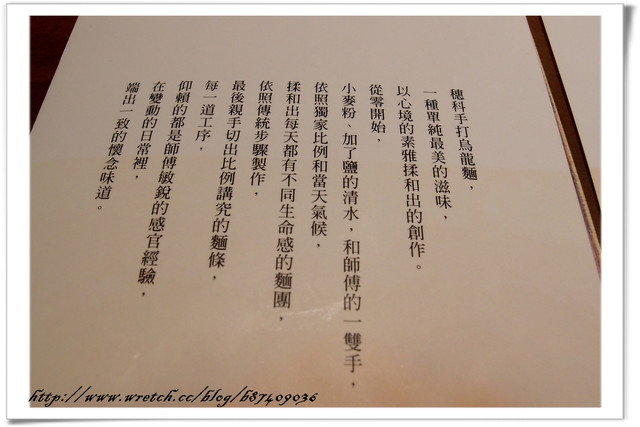 穗科手打烏龍麵，
一種單純最美的滋味，
以心境的素雅揉和出的創作。
從零開始，
小麥粉，加了鹽的清水，和師傅的一雙手，
依照獨家比例和當天氣候，
揉和出每天都有不同生命感的麵團，
依照傳統步驟製作，
最後親手切出比例講究的麵條，
每一道工序，
仰賴的都是師傅敏銳的感官經驗，
在變動的日常裡，
端出一致的懷念味道。
http://www.wretch.cc/blog/b87409036